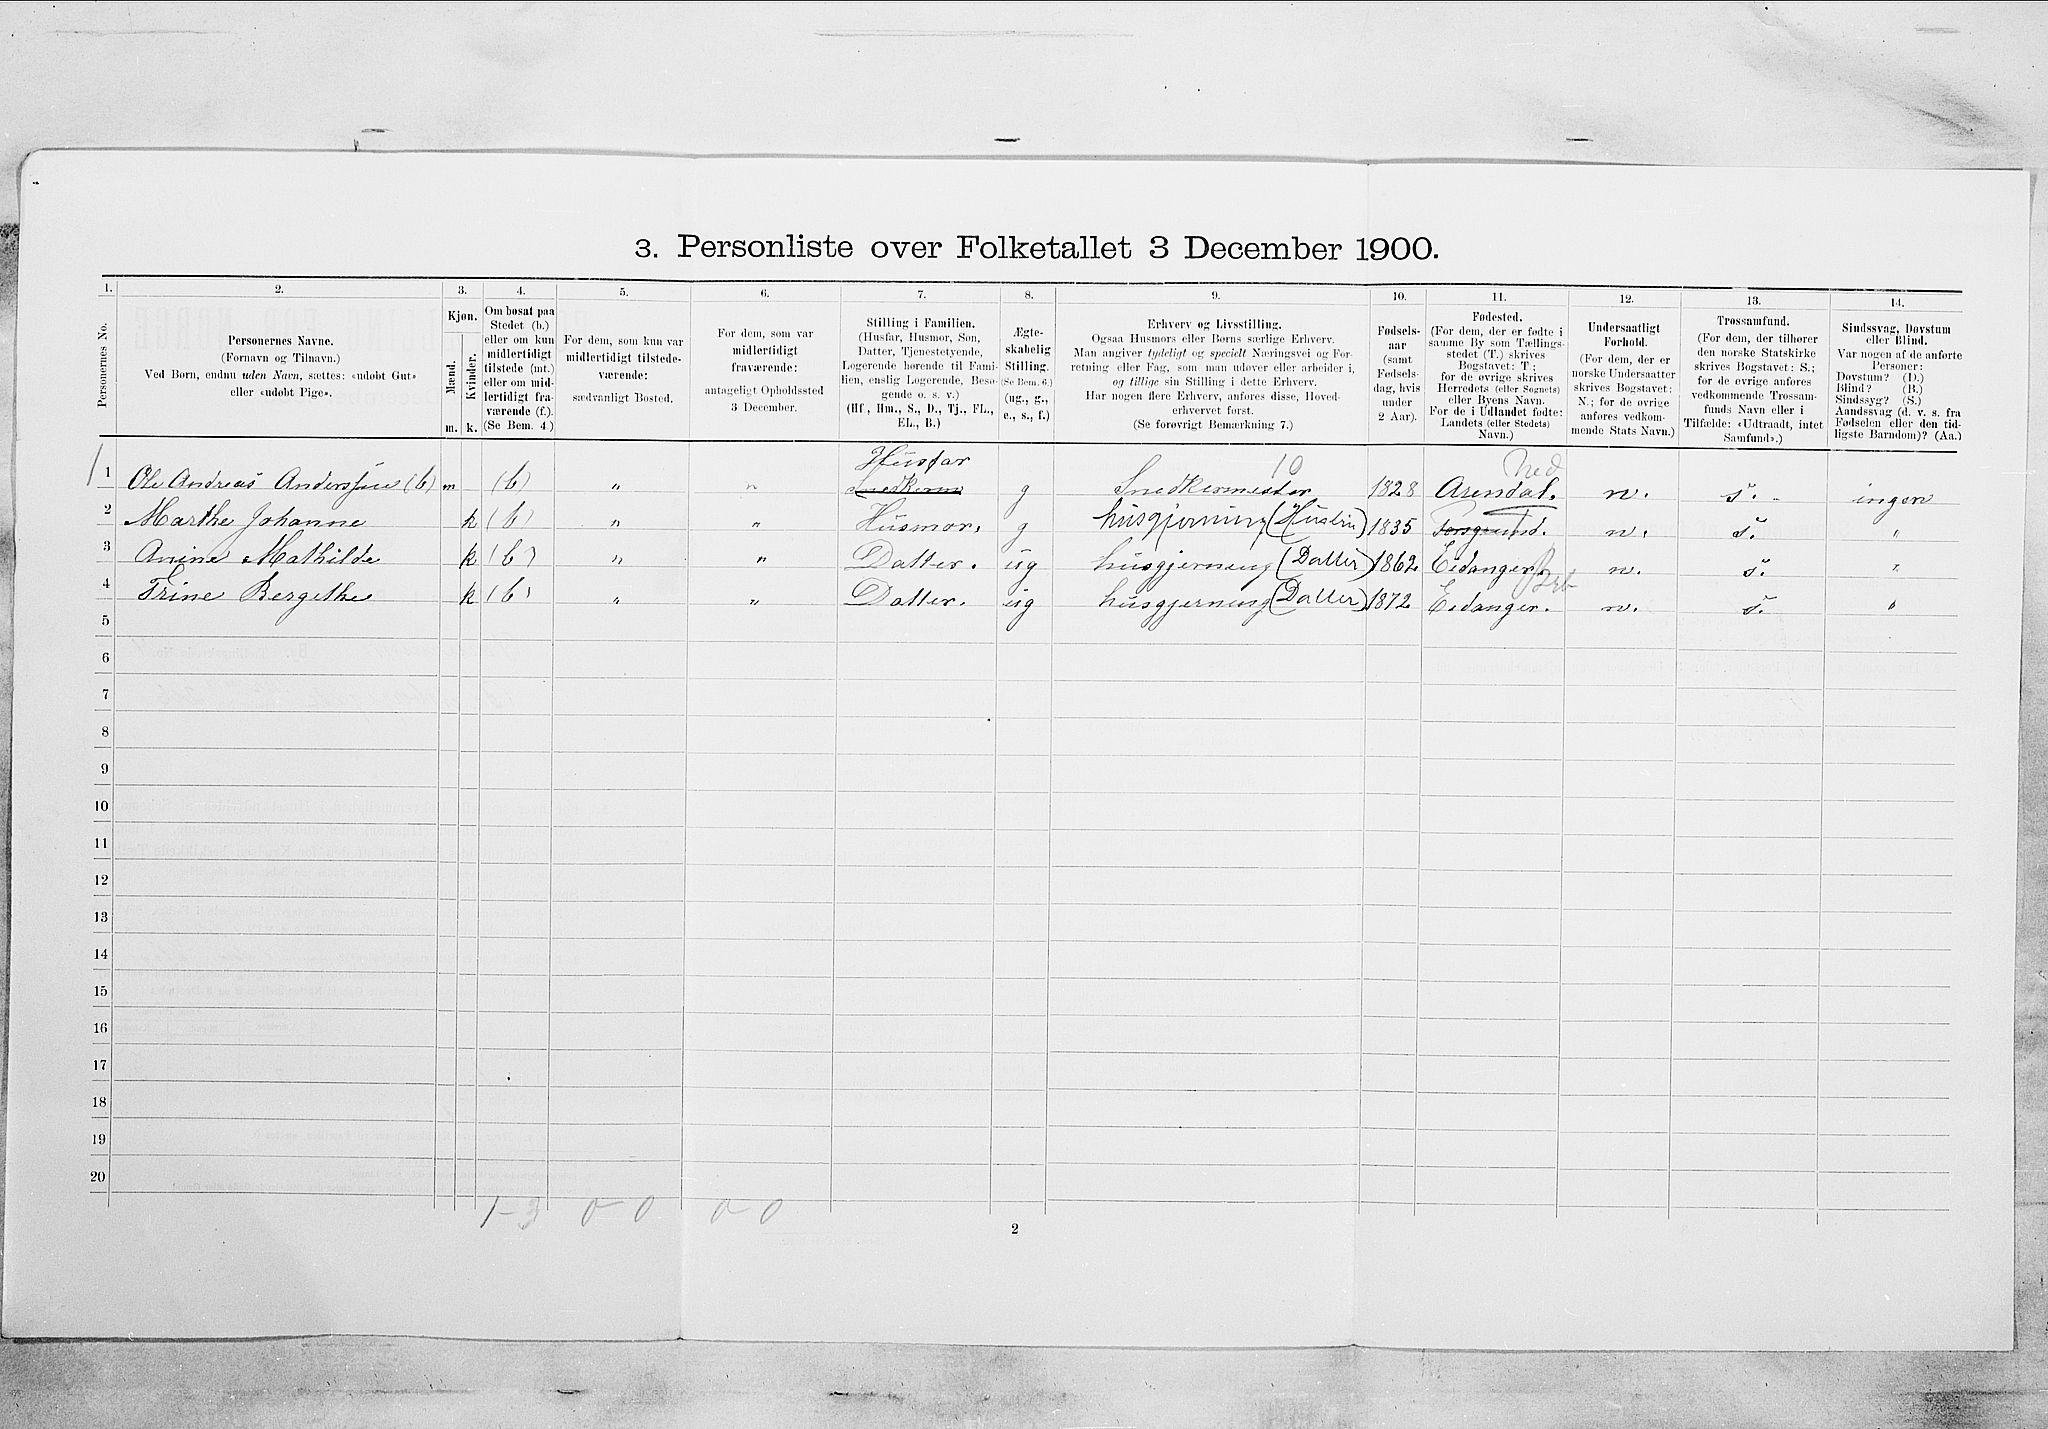 3. Personliste over Folketallet 3 December 1900.
1. 2. 3. 4. 5. 6. 7. 8. 9. 10. 11. 12. 13. 14.
Personernes No.
Personernes Navne.
(Fornavn og Tilnavn.)
Ved Børn, endnu uden Navn, sættes: «udøbt Gut»
eller «udøbt Pige».
Kjøn.
Mænd.
Kvinder.
m. k.
Om bosat paa
Stedet (b.)
eller om kun
midlertidigt
tilstede (mt.)
eller om mid-
lertidigt fra-
værende (f.).
(Se Bem. 4.)
For dem, som kun var
midlertidigt tilstede-
værende:
sædvanligt Bosted.
For dem, som var
midlertidigt
fraværende:
antageligt Opholdssted
3 December.
Stilling i Familien.
(Husfar, Husmor, Søn,
Datter, Tjenestetyende,
Logerende hørende til Fami-
lien, enslig Logerende, Besø-
gende o. s. v.)
(Hf., Hm., S., D., Tj., FL.,
EL., B.)
Ægte-
skabelig
Stilling.
(Se Bem. 6.)
(ug., g.,
e., s., f.)
Erhverv og Livsstilling.
Ogsaa Husmors eller Børns særlige Erhverv.
Man angiver tydeligt og specielt Næringsvei og For-
retning eller Fag, som man udøver eller arbeider i,
og tillige sin Stilling i dette Erhverv.
Har nogen flere Erhverv, anføres disse, Hoved-
erhvervet først.
(Se forøvrigt Bemærkning 7.)
Fødsels-
aar
(samt
Fødsels-
dag, hvis
under
2 Aar).
Fødested.
(For dem, der er fødte i
samme By som Tællings-
stedet (T.) skrives
Bogstavet: T.;
for de øvrige skrives
Herredets (eller Sognets)
eller Byens Navn.
For de i Udlandet fødte:
Landets (eller Stedets)
Navn.)
Undersaatligt
Forhold.
(For dem, der er
norske Undersaatter
skrives Bogstavet:
N.; for de øvrige
anføres vedkom-
mende Stats Navn.)
Trossamfund.
(For dem, der tilhører
den norske Statskirke
skrives Bogstavet: S.;
for de øvrige anføres
vedkommende Trossam-
funds Navn eller i
Tilfælde: «Udtraadt, intet
Samfund».)
Sindssvag, Døvstum
eller Blind.
Var nogen af de anførte
Personer:
Døvstum? (D.)
Blind? (B.)
Sindssyg? (S.)
Aandssvag (d. v. s. fra
Fødselen eller den tid-
ligste Barndom)? (Aa.)
Husfar 10 Ned
1 Ole Andreas Anderssen (b) m (b) " " g Snedkermester 1828 Arendal. n. s. ingen
2 Marthe Johanne k (b) " " Husmor. g husgjerning (Hustru) 1835 n. s. "
3 Anine Mathilde k (b) " " Datter. ug husgjerning (Datter) 1862 Eidanger. n. s. "
4 Trine Bergithe k (b) " " Datter. ug husgjerning (Datter) 1872 Eidanger. n. s. "
5
6
7
8
9
10
11
12
13
14
15
16
17
18
19
20
1-3 0-0 0-0
2